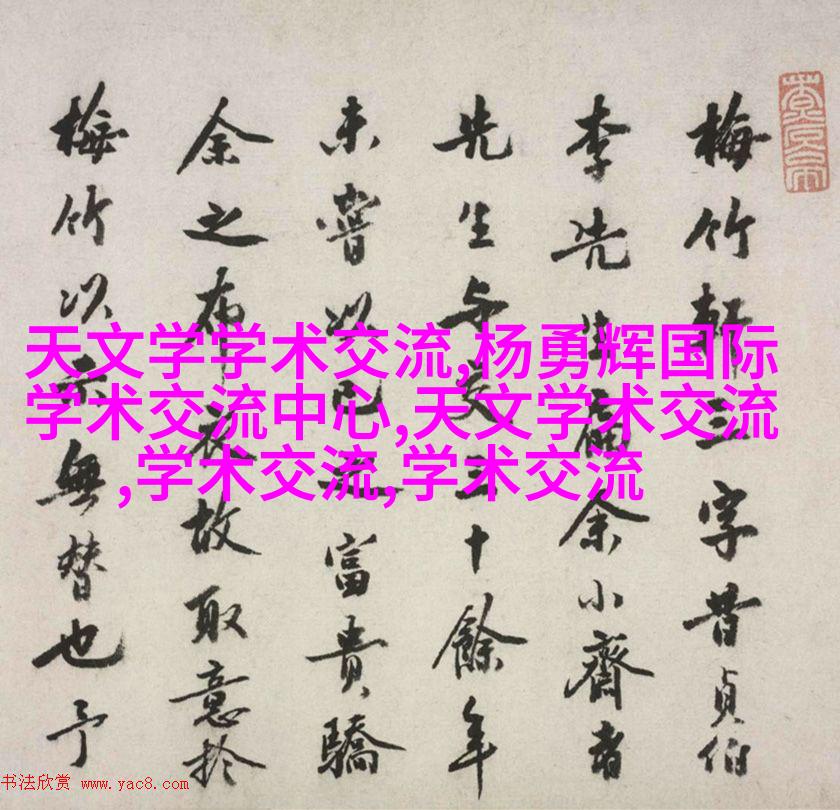 天文学学术交流,杨勇辉国际
学术交流中心,天文学术交流
,学术交流,学术交流
梅竹軒三字昔貞伯
李先生扁余小齋者
先生与交三十餘年
未嘗以己之富貴驕
余之布衣故取意於
梅竹以示無替也予
书法欣赏 www.yac8.com